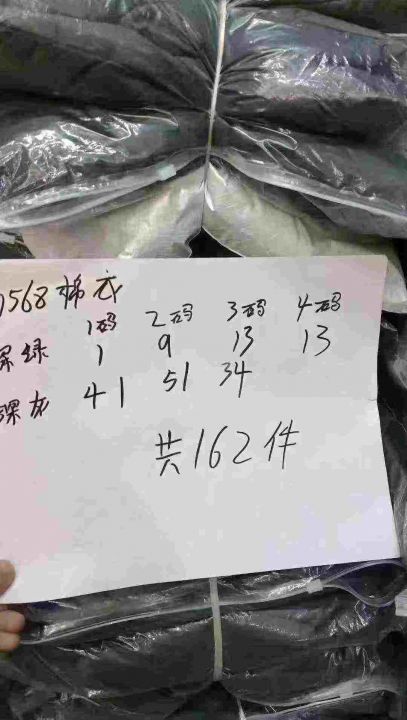 568棉衣
1码 2码 3码 4码
绿 1 9 13 13
灰 41 51 34
共162件